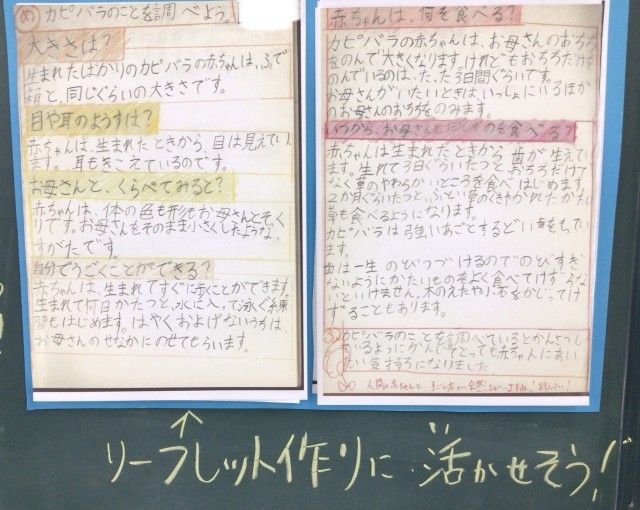 め カピバラのことを調べよう。
大きさは?
生まれたばかりのカピバラの赤ちゃんは、ふで
箱と、同じぐらいの大きさです。
目や耳のようすは?
赤ちゃんは、生まれたときから、目は見えてい
ます。耳もきこえているのです。
お母さんと、くらべてみると?
赤ちゃんは、体の色も形もお母さんとそっく
りです。お母さんをそのまま小さくしたような、
すがたです。
自分でうごくことができる?
赤ちゃんは、生まれてすぐに歩くことができます。
生まれて何日かたつと、水に入って泳ぐ練
習もはじめます。はやくおよげないうちは、
お母さんのせなかにのせてもらいます。
赤ちゃんは、何を食べる?
カピバラの赤ちゃんは、お母さんのおちち
をのんで大きくなります。けれどもおちちだけを
のんでいるのは、たった3日間ぐらいです。
お母さんがいたいときは、いっしょにいるほか
のお母さんのおちちをのみます。
いつから、お母さんと のも食べる?
赤ちゃんは生まれたときから歯が生えてい
ます。生れて3日ぐらいたつと、おちちだけで
なく草のやわらかいところを食べはじめます。
2か月ぐらいたつと、ふとい草のくきやかれたかたい
草も食べるようになります。
カピバラは強いあごとするどい歯をもってい
ます。
歯は一生のびつづけるのでのびすぎ
ないようにかたいものをよく食べてけずらな
いといけません。木のえだや小石をかじってけ
ずることもあります。
カピバラのことを調べていると
いるように とっても赤ちゃんにあい
たい気もちになりました。
人間の赤ちゃんと、 全然
↑
リーフレット作りに活かせそう!